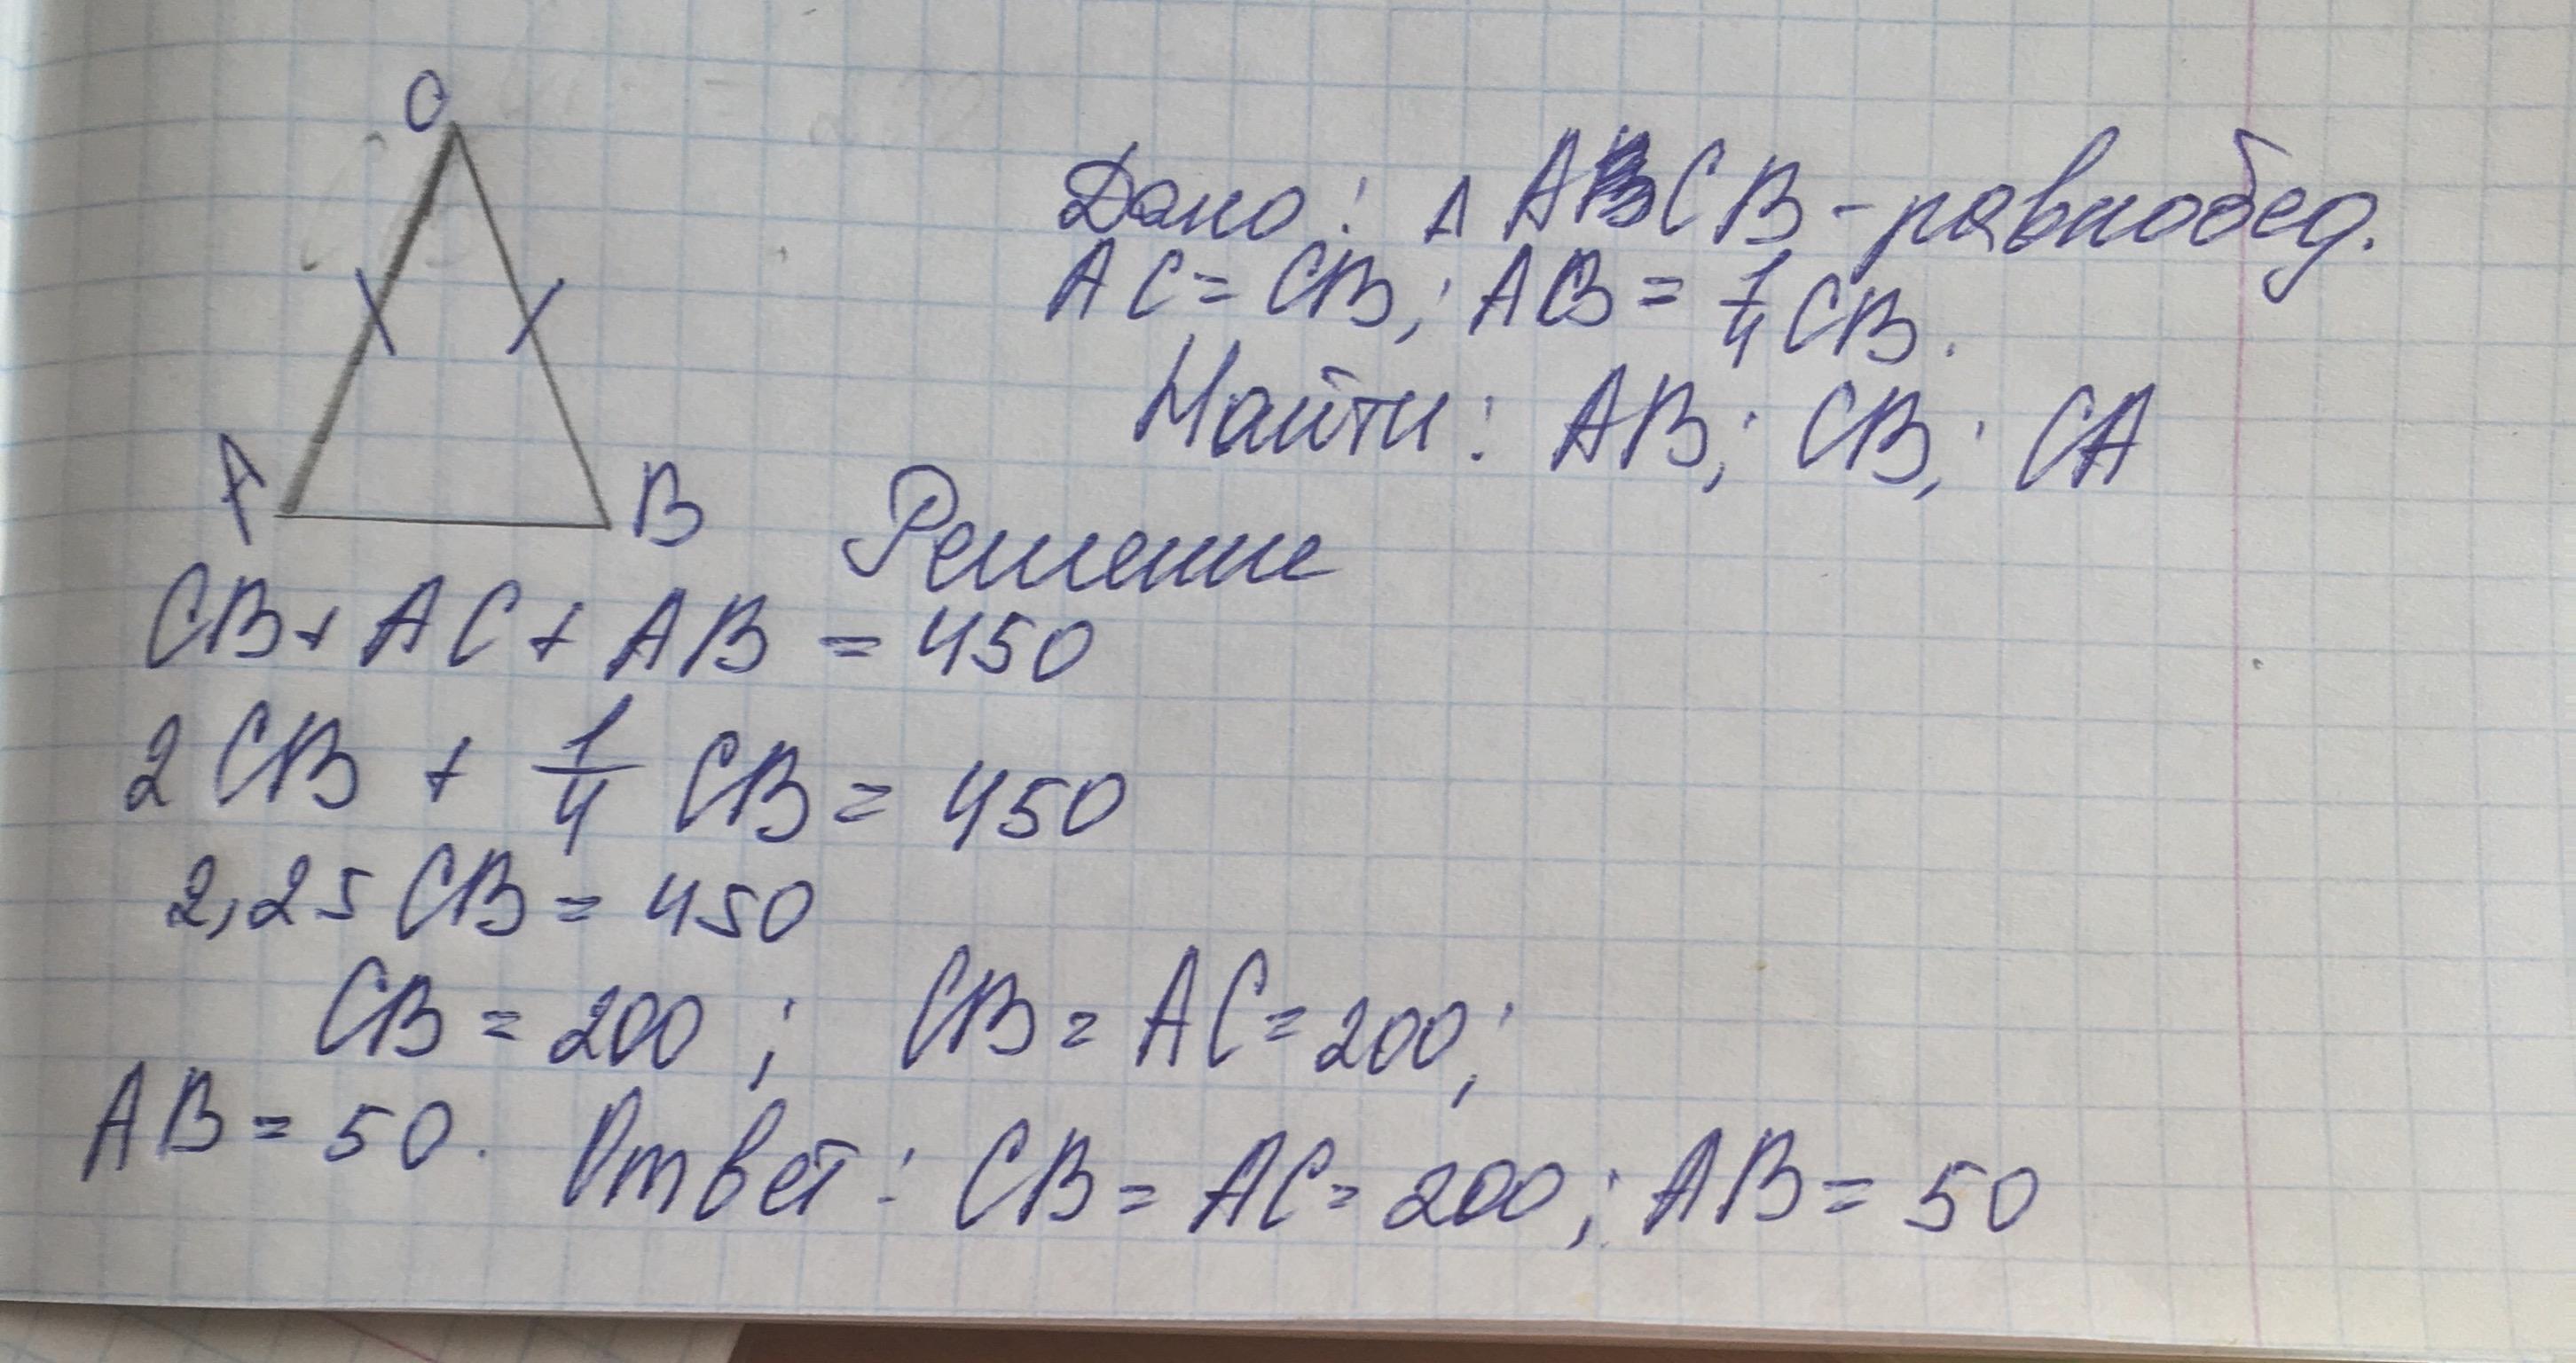 C
A
B
Дано: Δ ACB - равнобед.
AC = CB; AB = 1/4 CB.
Найти: AB; CB; CA
Решение
CB + AC + AB = 450
2 CB + 1/4 CB = 450
2,25 CB = 450
CB = 200; CB = AC = 200;
AB = 50. Ответ: CB = AC = 200; AB = 50